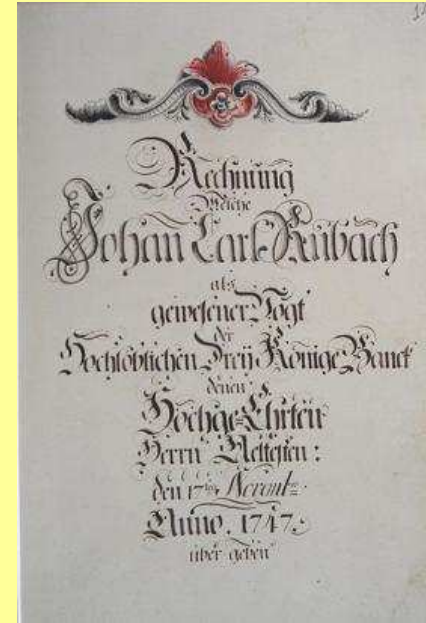 Rechnung
Welche
Johan̄ Carl Rübach
als
gewesener Vogt
der
Hochlöblichen Dreÿ Könige Banck
denen
Hochge-Ehrten
Herrn Aeltesten:
den 17ten Novembr:
Anno. 1747.
über geben